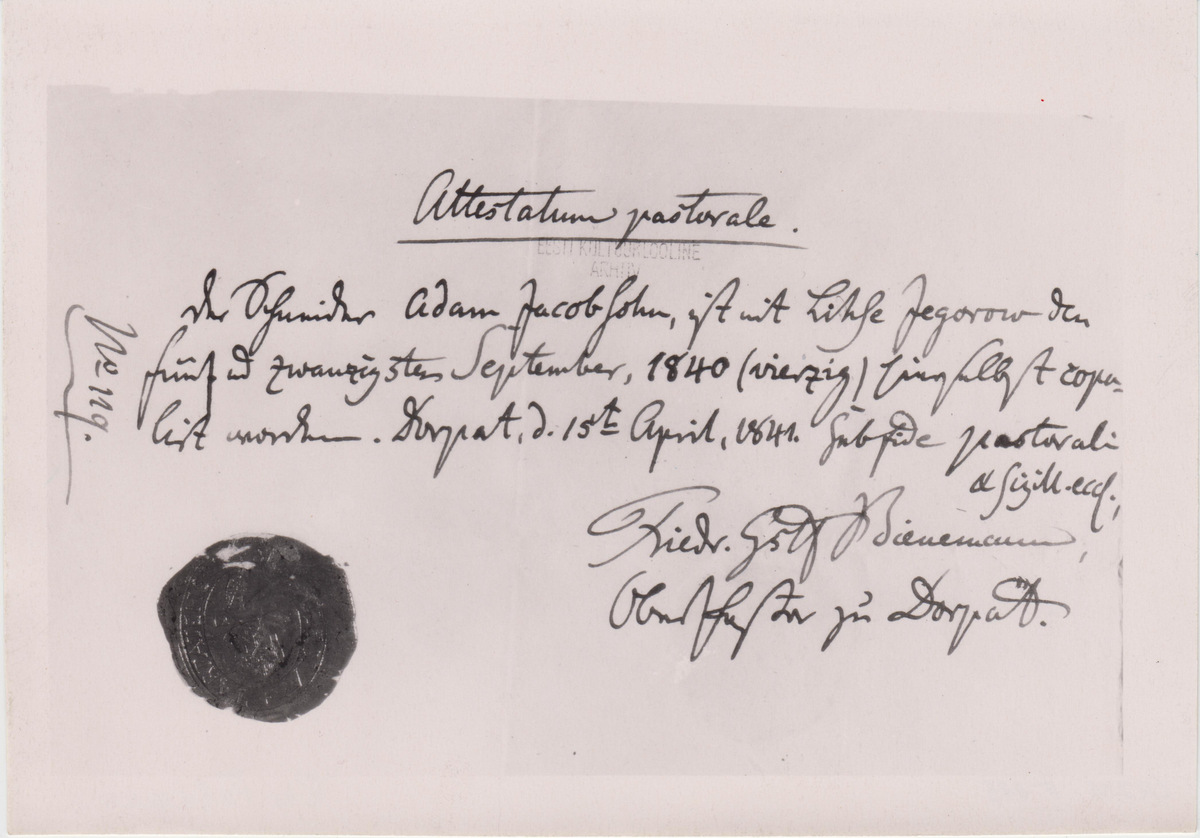 Attestatum pastorale.
EESTI KULTUURLOOLINE
ARHIIV
Der Schneider Adam Jacobsohn, ist mit Lihse Jegorow den
fünf ud zwanzigsten September, 1840 (vierzig) hieselbst copu-
lirt worden. Dorpat, d. 15ten April, 1841. Sub fide pastorali
& sigill. eccl.,
Friedr. Gstf Bienemann,
Oberpastor zu Dorpat.